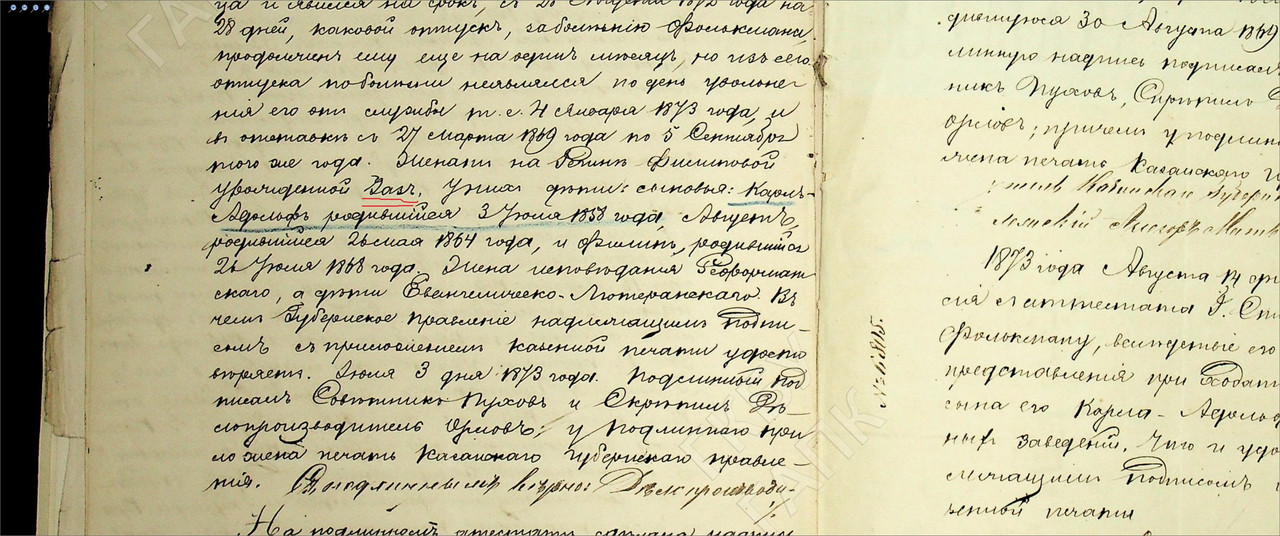 ца и явился на срокъ, съ 28 Августа 1872 года на
28 дней, каковой отпускъ, за болѣзнію Фолькмана,
продолженъ ему еще на одинъ мѣсяцъ, но изъ сего
отпуска по болѣзни неявлялся по день увольне-
нія его отъ службы т. е. 4 Января 1873 года, и
въ отставкѣ съ 27 Марта 1869 года по 5 Сентября
того же года. Женатъ на Филиповой
урожденной Газъ. У нихъ дѣти: сыновья: Карлъ-
Адольфъ родившійся 3 Іюля 1858 года, Августъ,
родившійся 26 мая 1864 года, и Филипъ, родившійся
26 Іюля 1868 года. Жена исповѣданія Реформат-
скаго, а дѣти Евангелическо-Лютеранскаго. Въ
чемъ Губернское Правленіе надлежащимъ подпи-
сомъ съ приложеніемъ казенной печати удосто
вѣряетъ. Іюля 3 дня 1873 года. Подлинный под
писалъ Совѣтникъ Пуховъ и Скрѣпилъ Дѣ-
лопроизводитель Орловъ; у подлиннаго при
ложена печать Казанскаго Губернскаго Правле-
нія. Съ подлиннымъ вѣрно: Дѣлопроизводи-
На подлинномъ аттестатѣ сдѣлана надпись
№ 6845.
30 Августа 1869
надпись подписалъ
никъ Пуховъ, Скрѣпилъ
Орловъ; причемъ у подлин
жена печать Казанскаго
1873 года Августа 14
сія аттестата Г.
Фолькману, вслѣдствіе его
представленія при
сына его Карла-Адольфа
ныя заведенія. Что и удо
лежащимъ подписомъ
зенной печати